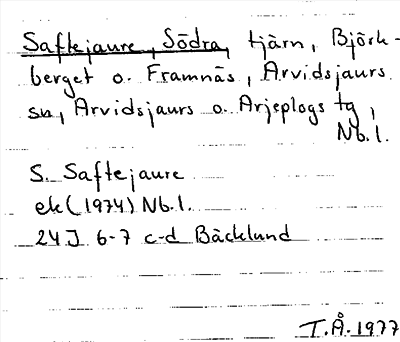 Saftejaure, Södra, tjärn, Björk-
berget o. Framnäs, Arvidsjaurs
sn, Arvidsjaurs o. Arjeplogs tg,
Nb.l.
S. Saftejaure
ek (1974) Nb.l.
24J 6-7 c-d Bäcklund
T.Å. 1977